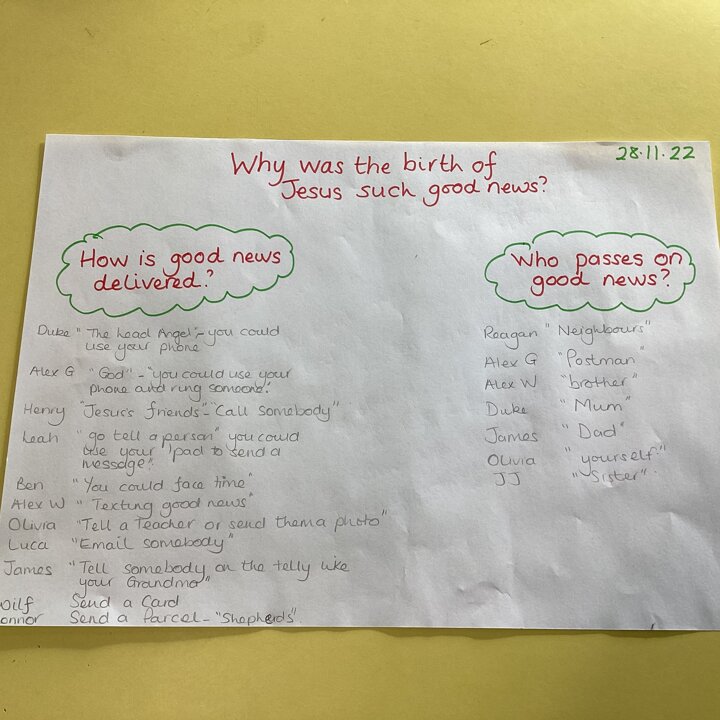 28.11.22
Why was the birth of
Jesus such good news?
How is good news
delivered?
Duke "The head Angel"- you could
use your phone
Alex G "God" - "you could use your
phone and ring someone."
Henry "Jesus's friends"- "Call somebody"
Leah "go tell a person" you could
use your ipad to send a
message".
Ben "You could face time"
Alex W "Texting good news"
Olivia "Tell a Teacher or send them a photo"
Luca "Email somebody"
James "Tell somebody on the telly like
your Grandma"
oilf Send a Card
onnor Send a Parcel - "Shepherds".
Who passes on
good news?
Reagan "Neighbours"
Alex G "Postman"
Alex W "brother"
Duke "Mum"
James "Dad"
Olivia "yourself."
JJ "Sister".